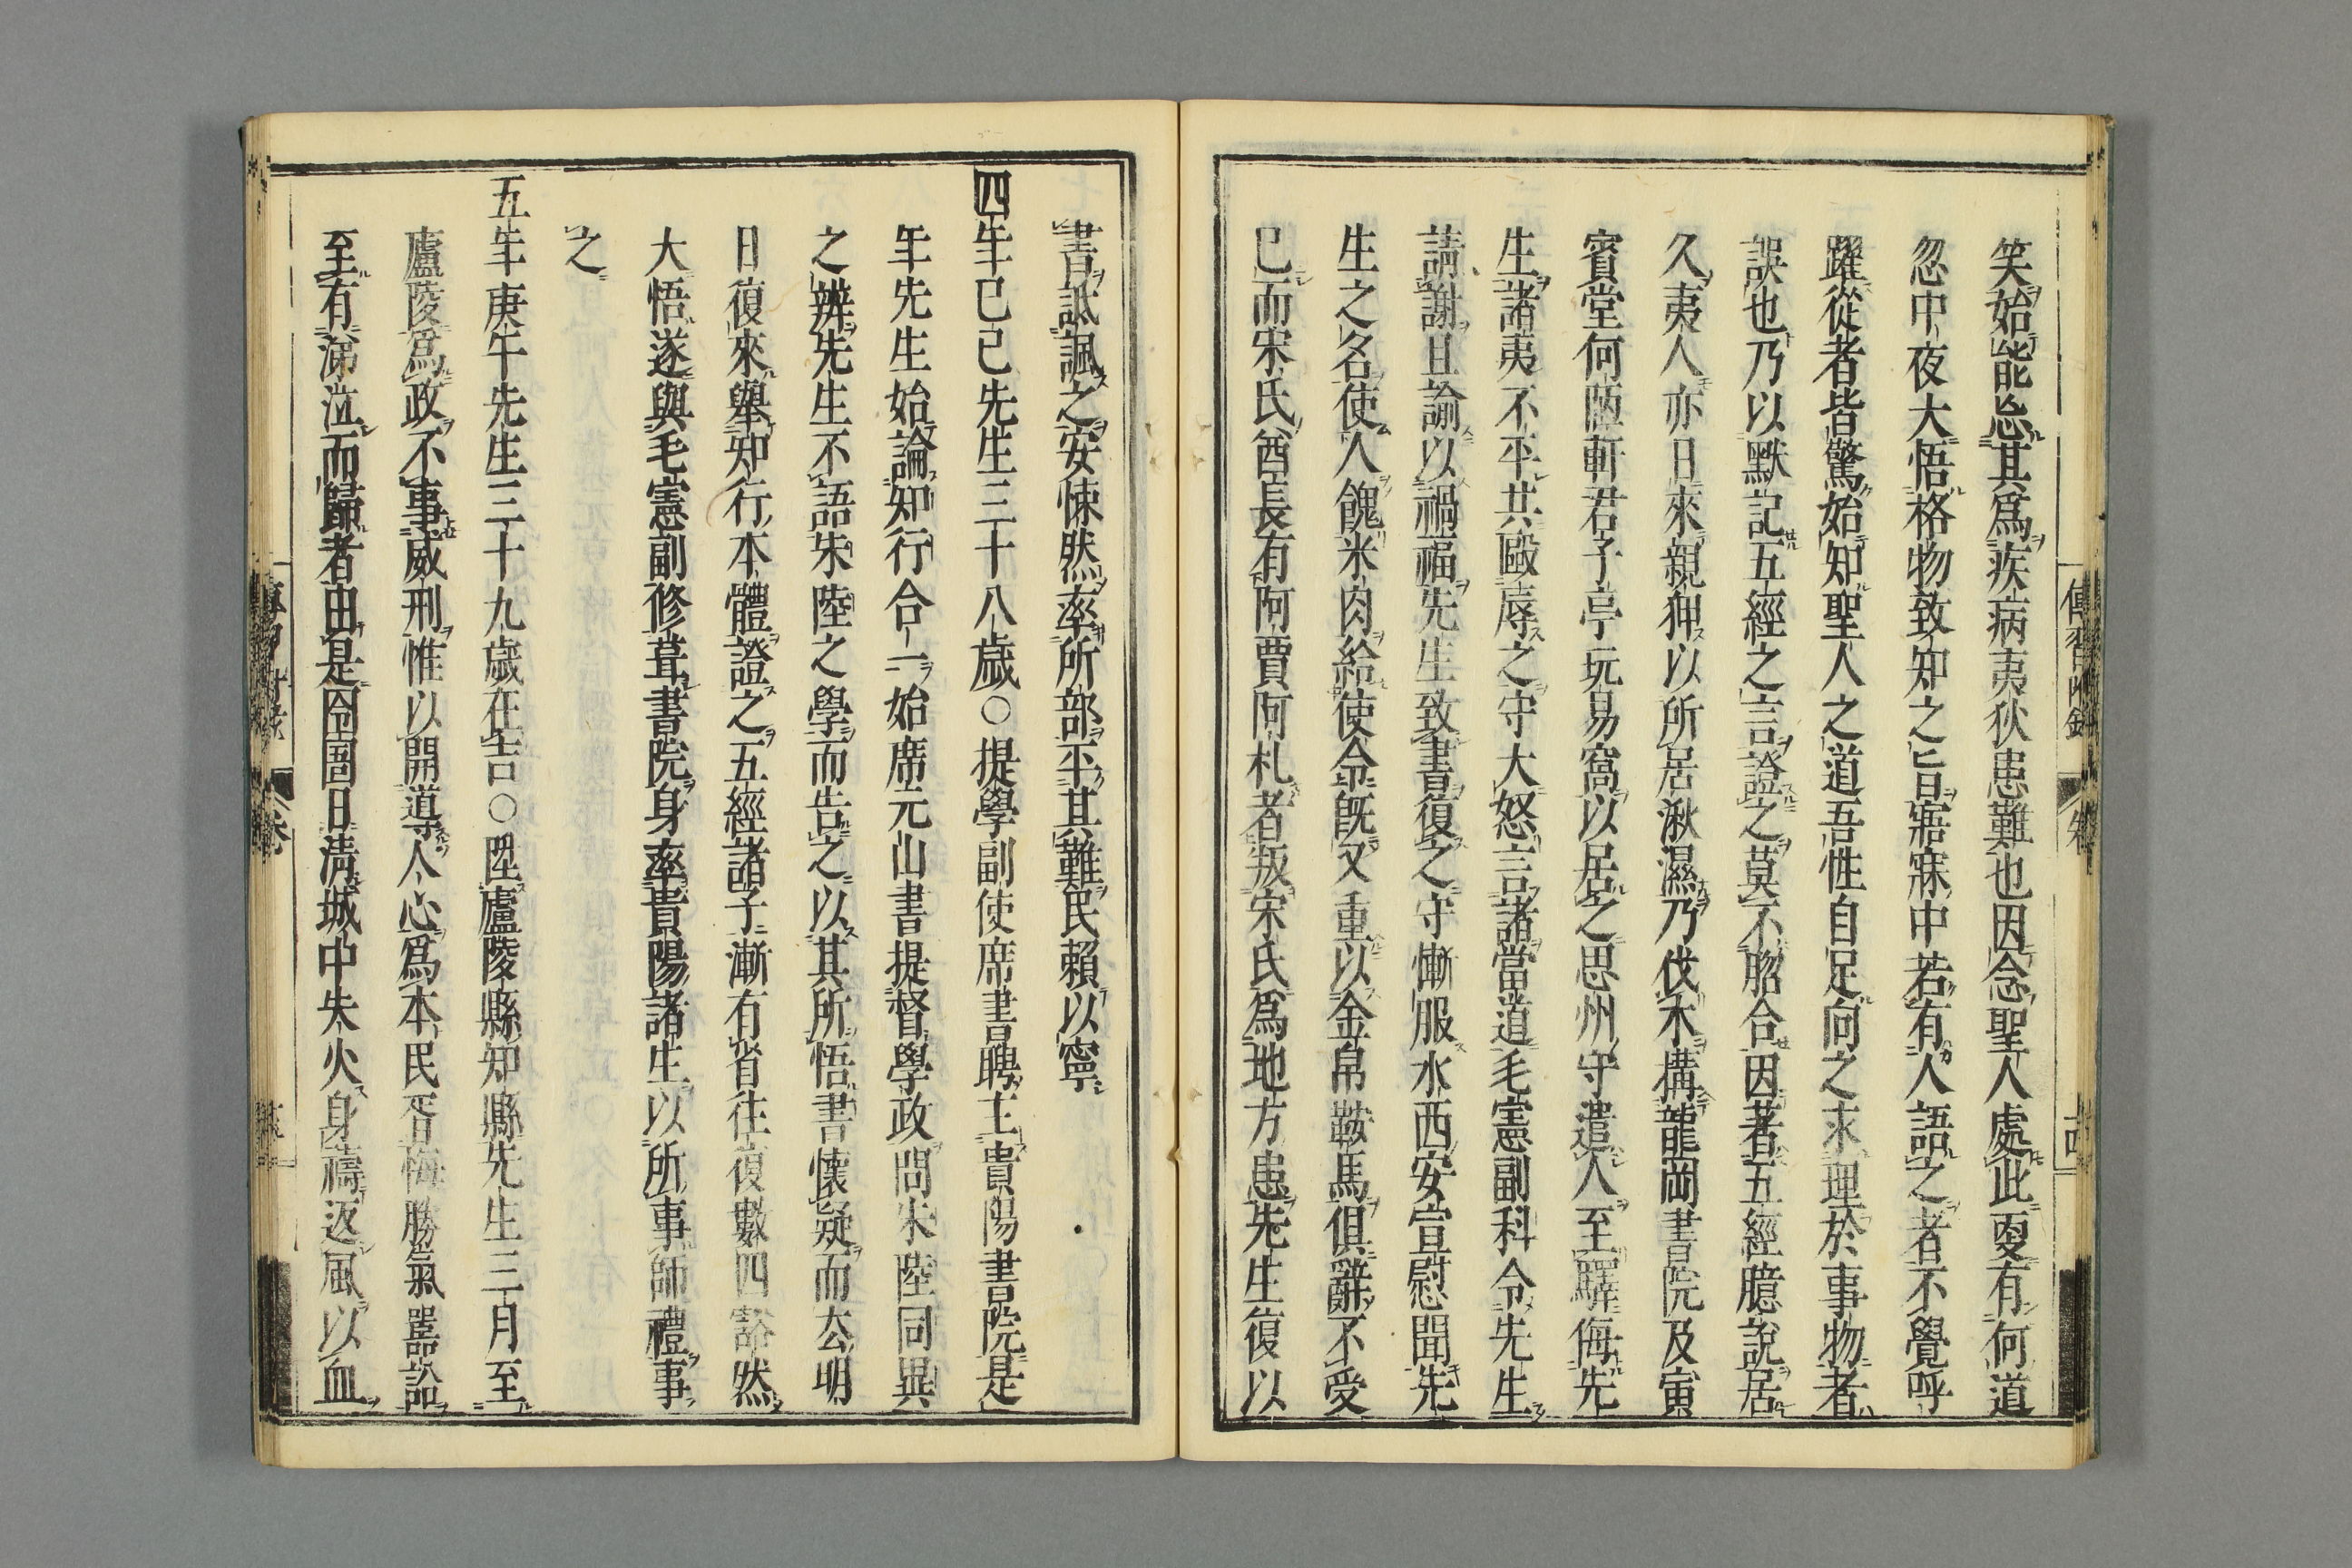 傳習附錄
卷
笑始能忘其爲疾病夷狄患難也因念聖人處此更有何道
忽中夜大悟格物致知之旨寤寐中若有人語之者不覺呼
躍從者皆驚始知聖人之道吾性自足向之求理於事物者
誤也乃以默記五經之言證之莫不脗合因著五經臆說居
久夷人亦日來親狎以所居湫濕乃伐木構龍岡書院及寅
賓堂何陋軒君子亭玩易窩以居之思州守遣人至驛侮先
生諸夷不平共毆辱之守大怒言諸當道毛憲副科令先生
請謝且諭以禍福先生致書復之守慚服水西安宣慰聞先
生之名使人餽米肉給使令旣又重以金帛鞍馬俱辭不受
已而宋氏酋長有阿賈阿札者叛宋氏爲地方患先生復以
書詆諷之安悚然率所部平其難民賴以寧
四年己巳先生三十八歲○提學副使席書聘主貴陽書院是
年先生始論知行合一始席元山書提督學政問朱陸同異
之辨先生不語朱陸之學而告之以其所悟書懷疑而去明
日復來舉知行本體證之五經諸子漸有省往復數四豁然
大悟遂與毛憲副修葺書院身率貴陽諸生以所事師禮事
之
五年庚午先生三十九歲在吉○陞廬陵縣知縣先生三月至
廬陵爲政不事威刑惟以開導人心爲本民胥悔勝氣囂訟
至有涕泣而歸者由是囹圄日清城中失火身禱返風以血